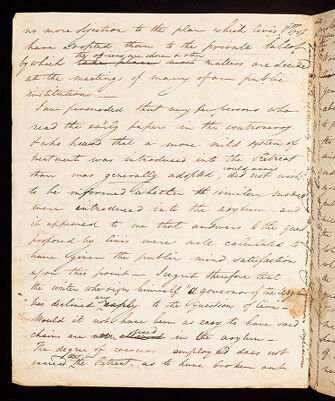 no more objection to the plan which Civis
have adopted than to the private ballot
the officers are chosen & other
by which take place matters are decided
at the meetings of many of our public
institutions.—
I am persuaded that very few persons who
read the early papers in this controversy
& who heard that a more mild system of
treatment was introduced into the Retreat
than was generally adopted, did not wish
to be informed whether the similar modes
were introduced into the asylum – and
it appeared to me that answers to the
proposed by Civis were well calculated to
have given the public mind satisfaction
upon this point – I regret therefore that
the writer who signs himself a governor of the Asylum
has declined any reply to the Question of Civis –
Would it not have been as easy to have said
chains are not used in the asylum –
The degree of coercion employed does not
exceed that in the Retreat – as to have broken out